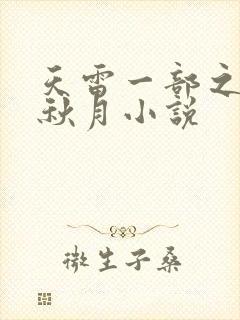 天雷一部之
秋月小說
微生子桑